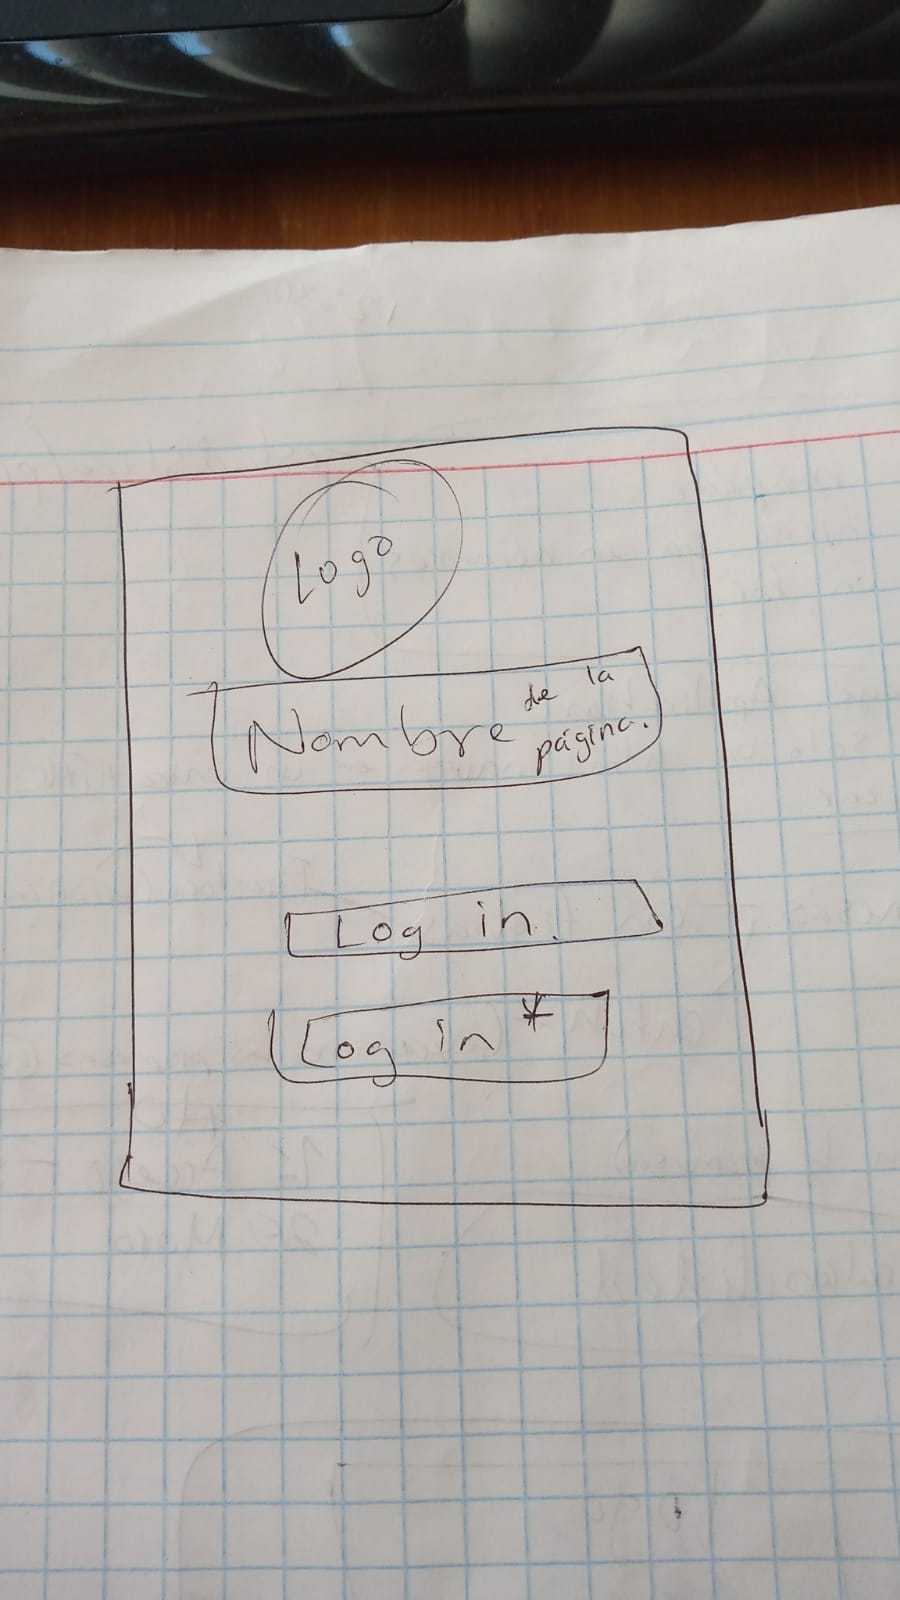 Logo
Nombre de la
página.
Log in.
Log in *